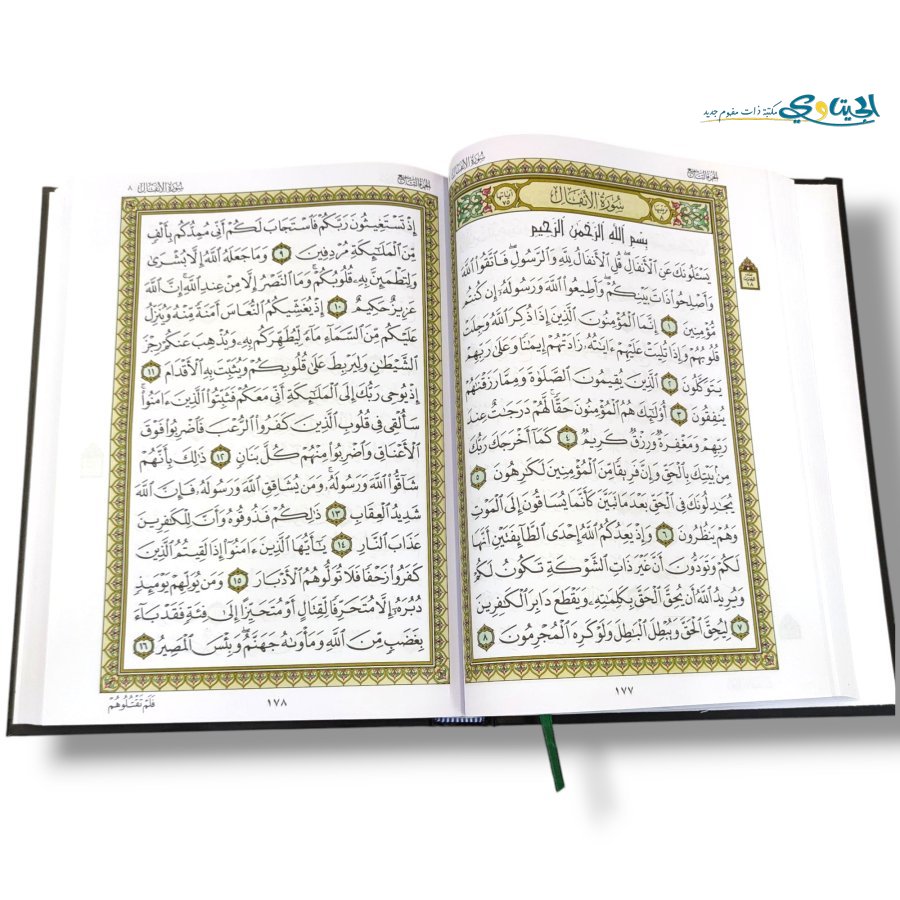 الجيتاوي
مكتبة ذات مفهوم جديد
سُورَةُ الأَنفَالِ
الجُزءُ التَّاسِعُ
سُورَةُ الأَنفَالِ
بِسْمِ ٱللَّهِ ٱلرَّحْمَٰنِ ٱلرَّحِيمِ
يَسْـَٔلُونَكَ عَنِ ٱلْأَنفَالِ ۖ قُلِ ٱلْأَنفَالُ لِلَّهِ وَٱلرَّسُولِ ۖ فَٱتَّقُوا۟ ٱللَّهَ
وَأَصْلِحُوا۟ ذَاتَ بَيْنِكُمْ ۖ وَأَطِيعُوا۟ ٱللَّهَ وَرَسُولَهُۥٓ إِن كُنتُم
مُّؤْمِنِينَ ١ إِنَّمَا ٱلْمُؤْمِنُونَ ٱلَّذِينَ إِذَا ذُكِرَ ٱللَّهُ وَجِلَتْ
قُلُوبُهُمْ وَإِذَا تُلِيَتْ عَلَيْهِمْ ءَايَٰتُهُۥ زَادَتْهُمْ إِيمَٰنًا وَعَلَىٰ رَبِّهِمْ
يَتَوَكَّلُونَ ٢ ٱلَّذِينَ يُقِيمُونَ ٱلصَّلَوٰةَ وَمِمَّا رَزَقْنَٰهُمْ
يُنفِقُونَ ٣ أُو۟لَٰٓئِكَ هُمُ ٱلْمُؤْمِنُونَ حَقًّا ۚ لَّهُمْ دَرَجَٰتٌ عِندَ
رَبِّهِمْ وَمَغْفِرَةٌ وَرِزْقٌ كَرِيمٌ ٤ كَمَآ أَخْرَجَكَ رَبُّكَ
مِنۢ بَيْتِكَ بِٱلْحَقِّ وَإِنَّ فَرِيقًا مِّنَ ٱلْمُؤْمِنِينَ لَكَٰرِهُونَ ٥
يُجَٰدِلُونَكَ فِى ٱلْحَقِّ بَعْدَ مَا تَبَيَّنَ كَأَنَّمَا يُسَاقُونَ إِلَى ٱلْمَوْتِ
وَهُمْ يَنظُرُونَ ٦ وَإِذْ يَعِدُكُمُ ٱللَّهُ إِحْدَى ٱلطَّآئِفَتَيْنِ أَنَّهَا
لَكُمْ وَتَوَدُّونَ أَنَّ غَيْرَ ذَاتِ ٱلشَّوْكَةِ تَكُونُ لَكُمْ
وَيُرِيدُ ٱللَّهُ أَن يُحِقَّ ٱلْحَقَّ بِكَلِمَٰتِهِۦ وَيَقْطَعَ دَابِرَ ٱلْكَٰفِرِينَ
٧ لِيُحِقَّ ٱلْحَقَّ وَيُبْطِلَ ٱلْبَٰطِلَ وَلَوْ كَرِهَ ٱلْمُجْرِمُونَ ٨
١٧٧
سُورَةُ الأَنفَالِ ٨
الجُزءُ التَّاسِعُ
إِذْ تَسْتَغِيثُونَ رَبَّكُمْ فَٱسْتَجَابَ لَكُمْ أَنِّى مُمِدُّكُم بِأَلْفٍ
مِّنَ ٱلْمَلَٰٓئِكَةِ مُرْدِفِينَ ٩ وَمَا جَعَلَهُ ٱللَّهُ إِلَّا بُشْرَىٰ
وَلِتَطْمَئِنَّ بِهِۦ قُلُوبُكُمْ ۚ وَمَا ٱلنَّصْرُ إِلَّا مِنْ عِندِ ٱللَّهِ ۚ إِنَّ ٱللَّهَ
عَزِيزٌ حَكِيمٌ ١٠ إِذْ يُغَشِّيكُمُ ٱلنُّعَاسَ أَمَنَةً مِّنْهُ وَيُنَزِّلُ
عَلَيْكُم مِّنَ ٱلسَّمَآءِ مَآءً لِّيُطَهِّرَكُم بِهِۦ وَيُذْهِبَ عَنكُمْ رِجْزَ
ٱلشَّيْطَٰنِ وَلِيَرْبِطَ عَلَىٰ قُلُوبِكُمْ وَيُثَبِّتَ بِهِ ٱلْأَقْدَامَ ١١
إِذْ يُوحِى رَبُّكَ إِلَى ٱلْمَلَٰٓئِكَةِ أَنِّى مَعَكُمْ فَثَبِّتُوا۟ ٱلَّذِينَ ءَامَنُوا۟ ۚ
سَأُلْقِى فِى قُلُوبِ ٱلَّذِينَ كَفَرُوا۟ ٱلرُّعْبَ فَٱضْرِبُوا۟ فَوْقَ
ٱلْأَعْنَاقِ وَٱضْرِبُوا۟ مِنْهُمْ كُلَّ بَنَانٍ ١٢ ذَٰلِكَ بِأَنَّهُمْ
شَآقُّوا۟ ٱللَّهَ وَرَسُولَهُۥ ۚ وَمَن يُشَاقِقِ ٱللَّهَ وَرَسُولَهُۥ فَإِنَّ ٱللَّهَ
شَدِيدُ ٱلْعِقَابِ ١٣ ذَٰلِكُمْ فَذُوقُوهُ وَأَنَّ لِلْكَٰفِرِينَ
عَذَابَ ٱلنَّارِ ١٤ يَٰٓأَيُّهَا ٱلَّذِينَ ءَامَنُوٓا۟ إِذَا لَقِيتُمُ ٱلَّذِينَ
كَفَرُوا۟ زَحْفًا فَلَا تُوَلُّوهُمُ ٱلْأَدْبَارَ ١٥ وَمَن يُوَلِّهِمْ يَوْمَئِذٍ
دُبُرَهُۥٓ إِلَّا مُتَحَرِّفًا لِّقِتَالٍ أَوْ مُتَحَيِّزًا إِلَىٰ فِئَةٍ فَقَدْ بَآءَ
بِغَضَبٍ مِّنَ ٱللَّهِ وَمَأْوَىٰهُ جَهَنَّمُ ۖ وَبِئْسَ ٱلْمَصِيرُ ١٦
١٧٨
فَلَمْ تَقْتُلُوهُمْ